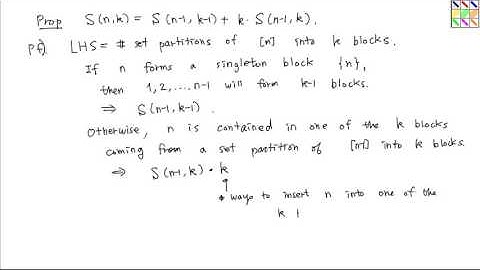 Prop S(n,k) = S(n-1, k-1) + k· S(n-1, k).
pf) LHS = # set partitions of [n] into k blocks.
If n forms a singleton block {n},
then 1, 2, ... n-1 will form k-1 blocks.
⇒ S(n-1, k-1).
Otherwise, n is contained in one of the k blocks
coming from a set partition of [n-1] into k blocks.
⇒ S(n-1, k) · k
# ways to insert n into one of the
k